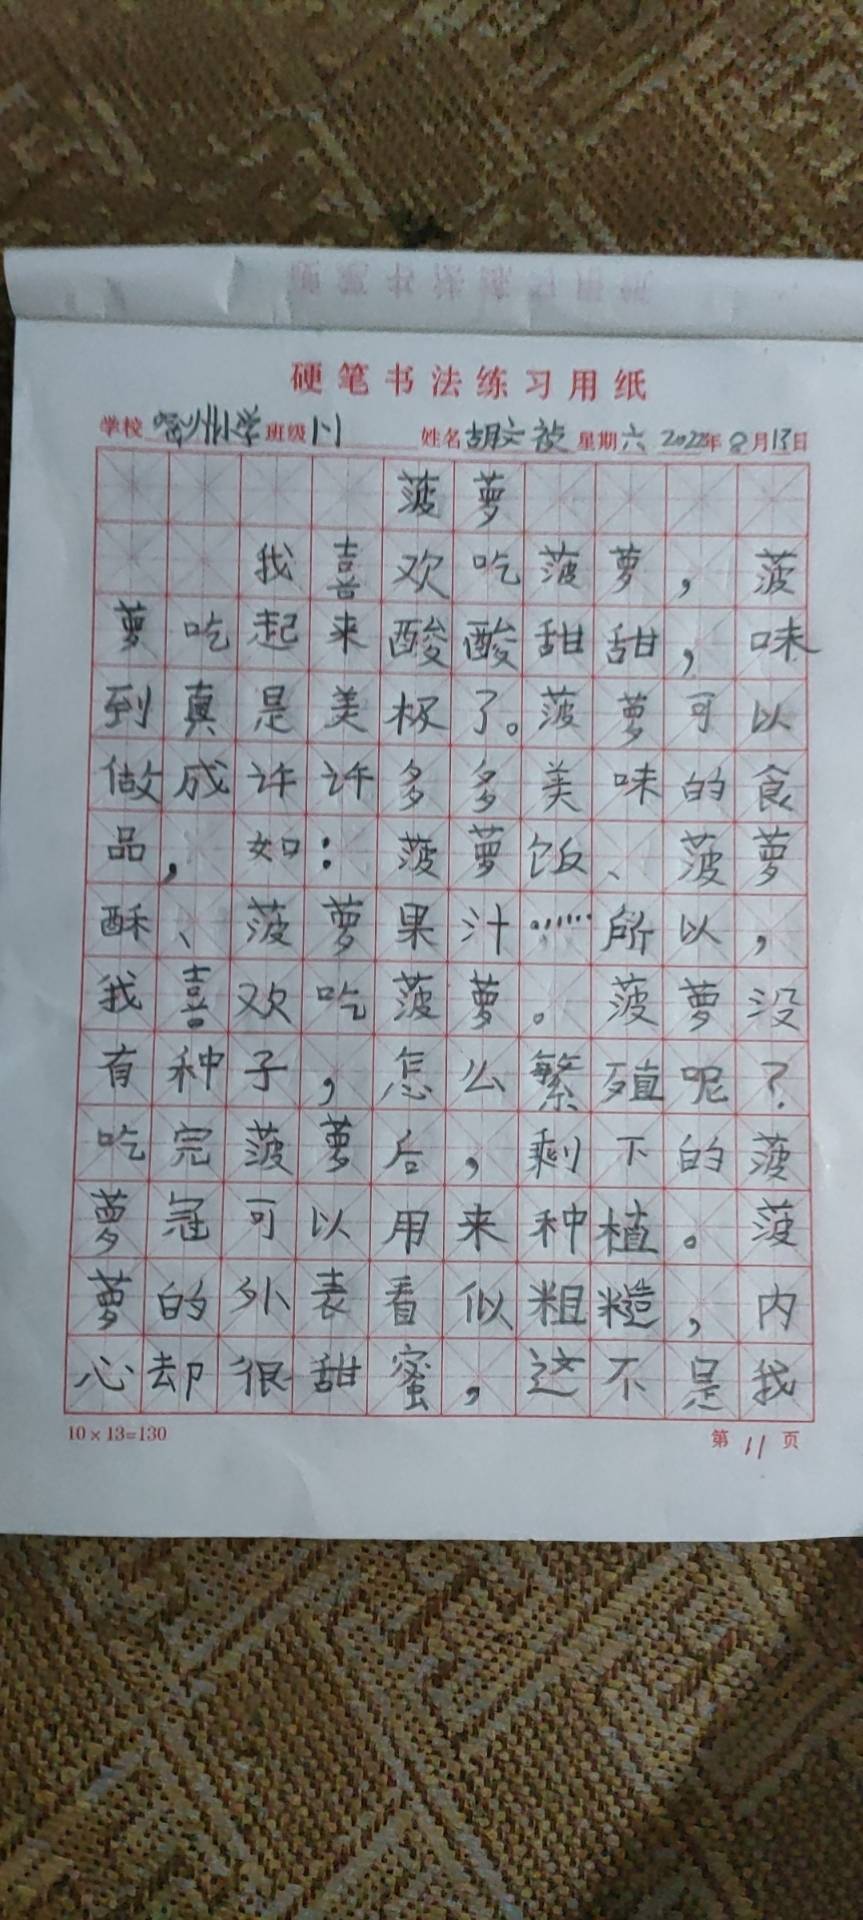 硬笔书法练习用纸
学校 州小学 班级 1-1 姓名 胡文 星期六 2022年8月13日
菠萝
我喜欢吃菠萝，菠
萝吃起来酸酸甜甜，味
到真是美极了。菠萝可以
做成许许多多美味的食
品，如：菠萝饭、菠萝
酥、菠萝果汁……所以，
我喜欢吃菠萝。菠萝没
有种子，怎么繁殖呢？
吃完菠萝后，剩下的菠
萝冠可以用来种植。菠
萝的外表看似粗糙，内
心却很甜蜜，这不是我
10×13=130 第11页